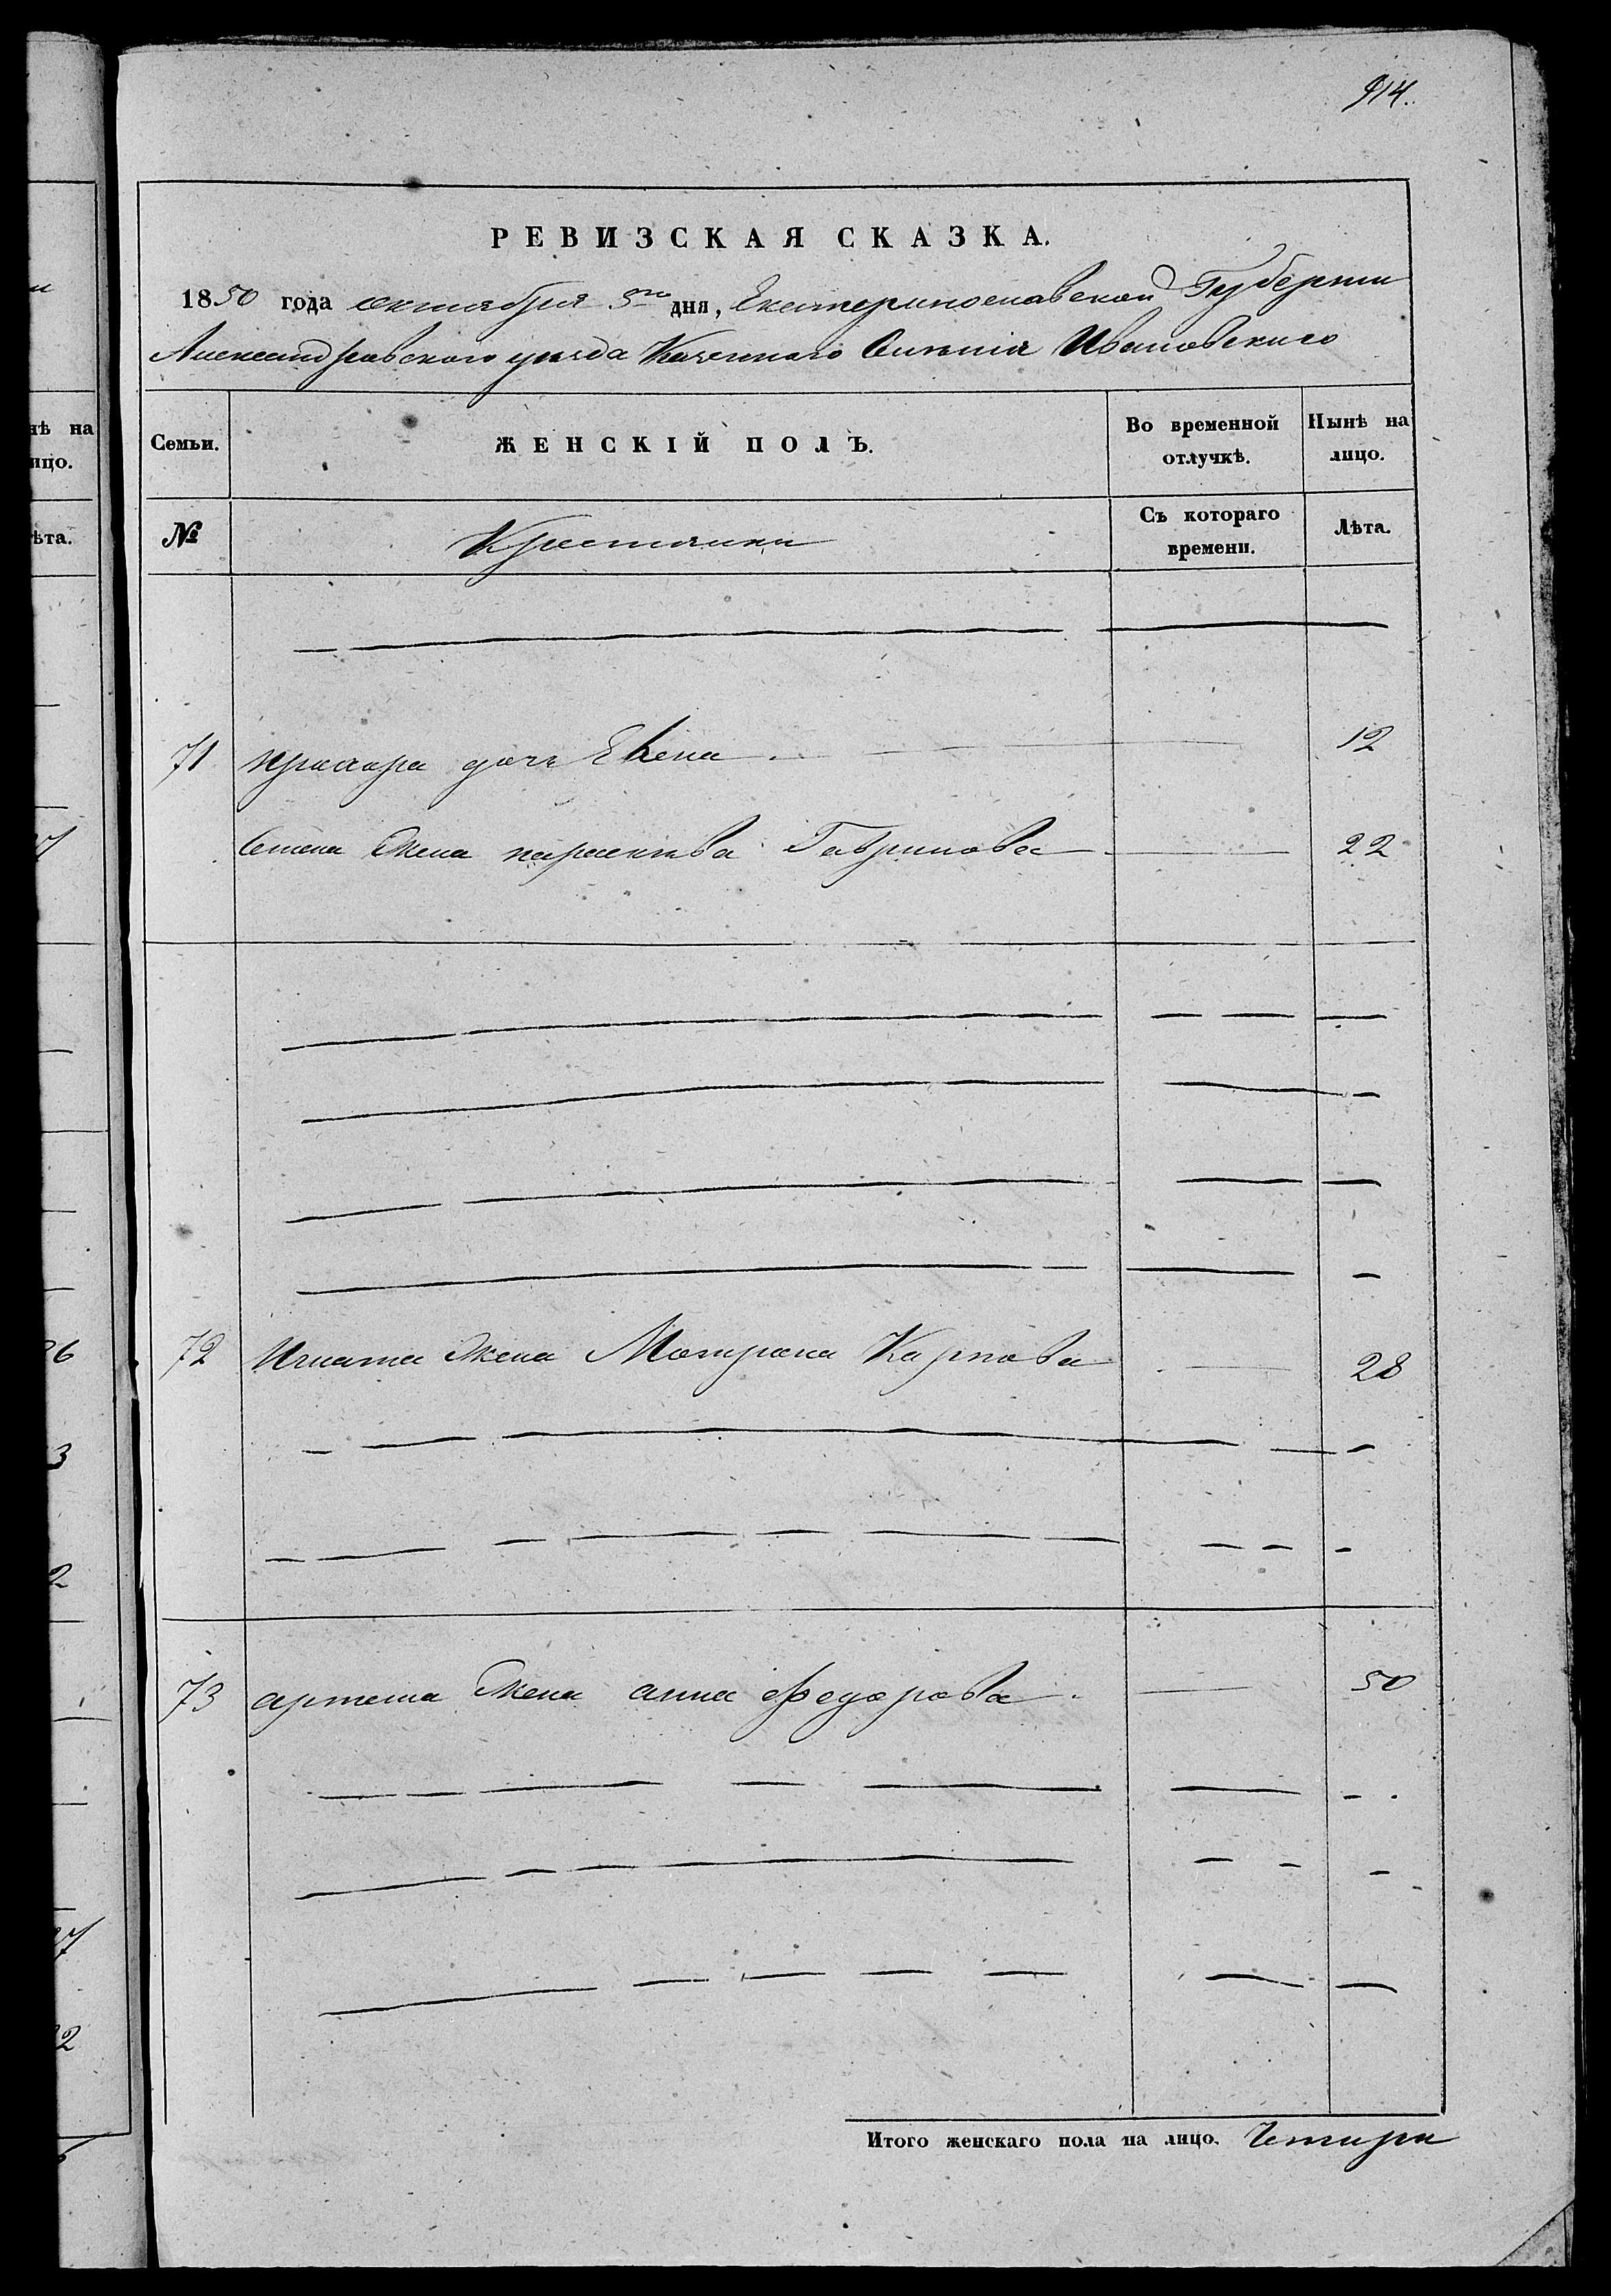 914.
РЕВИЗСКАЯ СКАЗКА.
1850 года октября 5го дня, Екатеринославской Губернии
Александровского уезда Казенного Селения Ивановского
Семьи. ЖЕНСКІЙ ПОЛЪ. Во временной отлучкѣ. Нынѣ на лицо.
№ Крестянки Съ котораго времени. Лѣта.
71 прохора дочь Елена 12
Семена Жена параскива Гаврилова 22
72 Игната Жена Мотрона Карпова 28
73 артема Жена анна федорова 50
Итого женскаго пола на лицо. Четири
нѣ на
ицо.
ѣта.
26
3
2